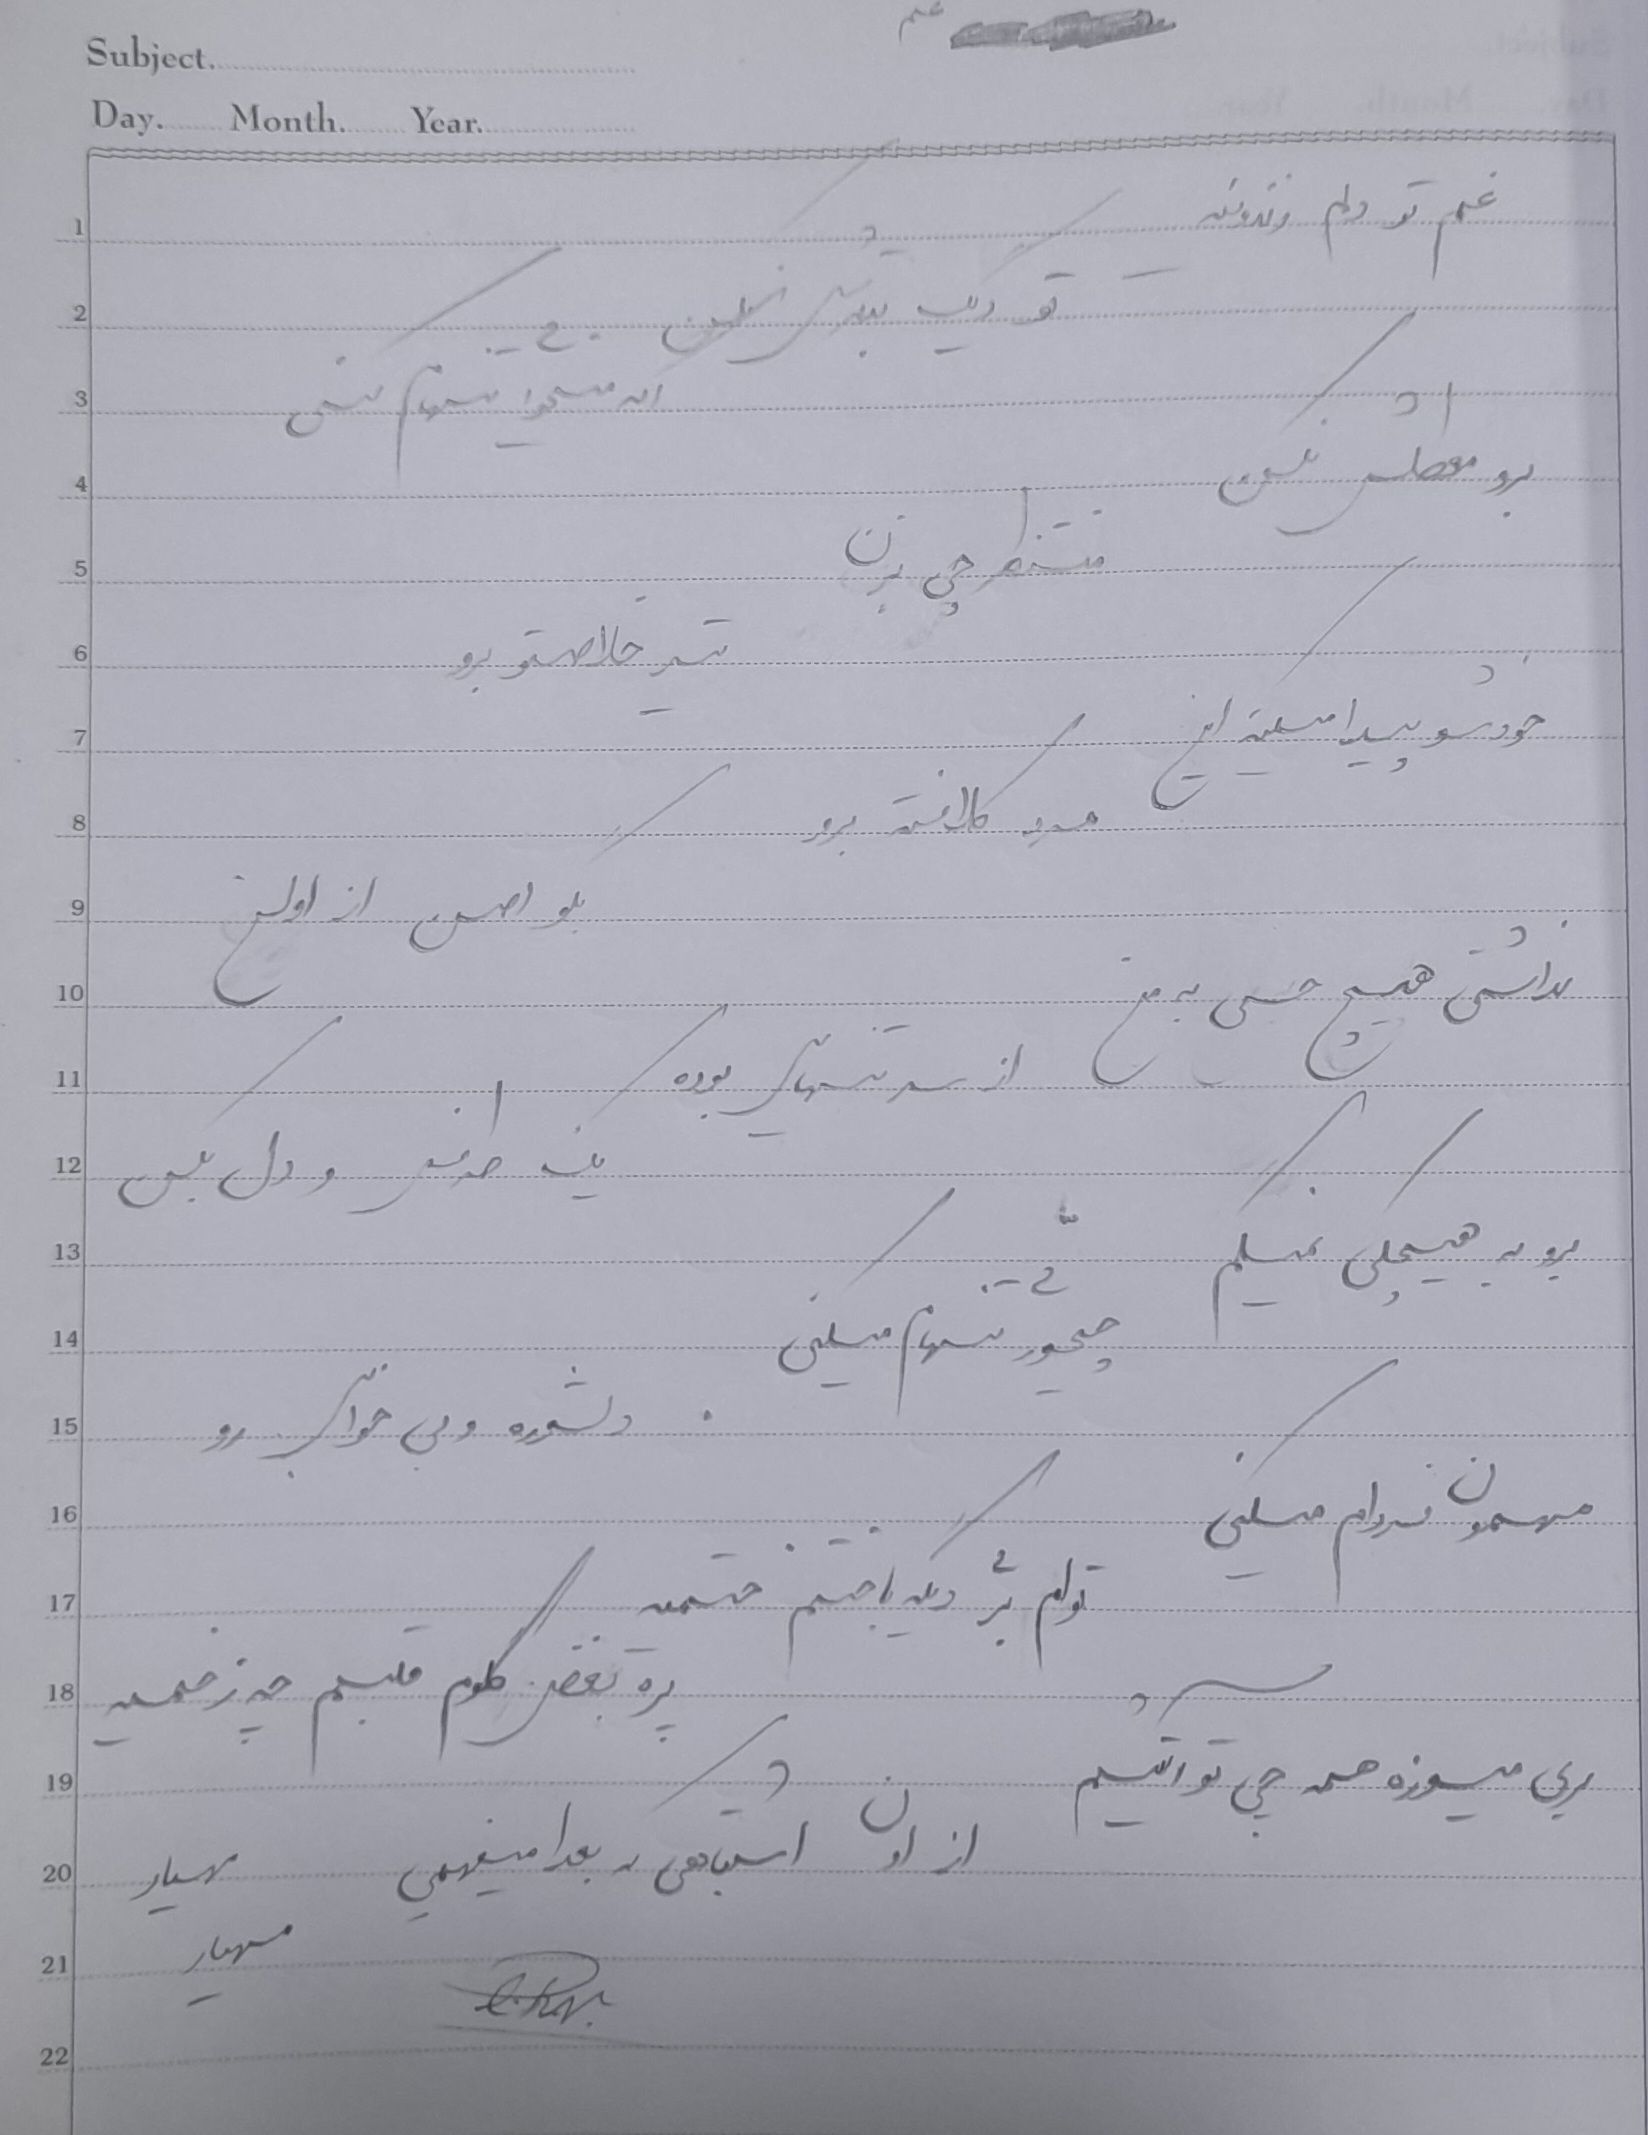 غم
Subject.
Day. Month. Year.
1
غم تو دلم زندونه
2
تو دیگ بدترش نکن
3
اگه میخوای تنهام بکنی
4
برو معطلش نکن
5
منتظر چی بزن
6
تیر خلاصتو برو
7
خودشو پیدا میکنه این
8
مرد کلافت برو
9
بگو اصلن از اولش
10
نداشتی هیچ حسی به من
11
از سر تنهایی بوده
12
یک و دل بکن
13
برو به هیچکی نمیگم
14
چجوری تنهام میکنی
15
دلشوره و بی خوابی رو
16
مهمون فردام میکنی
17
توام بری دیگه باختم ختممه
18
پره بغض گلوم قلبم چه زخمیه
19
بری میسوزه همه چی تو آتیشم
20
از اون اشتباهی که بعدا میفهمی
مهیار
21
مهیار
22